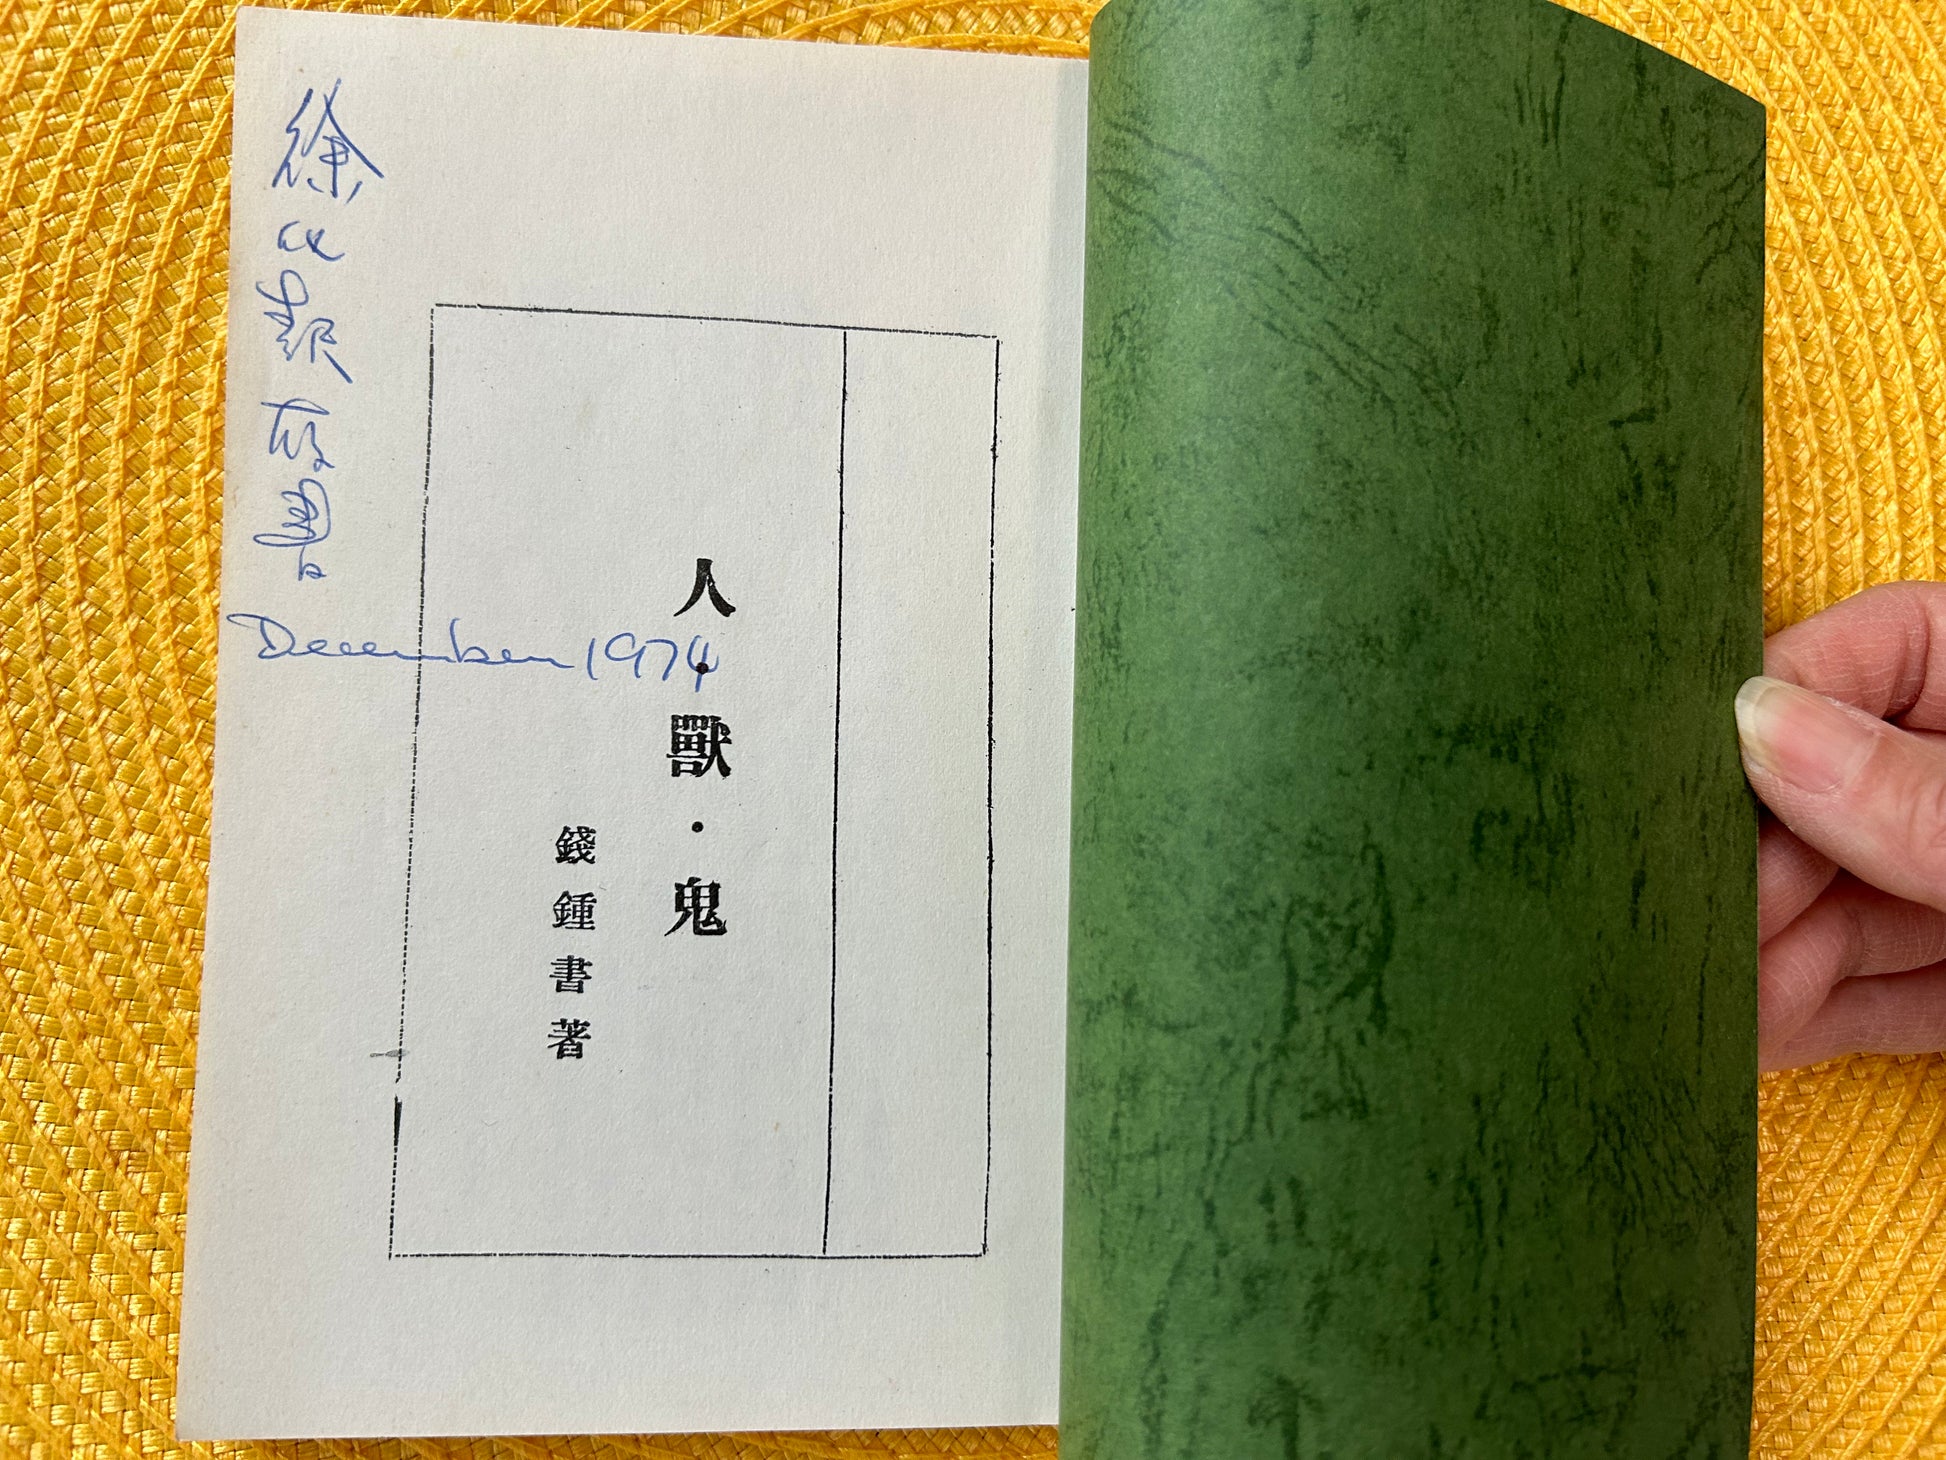 徐
December 1974
人·獸·鬼
錢鍾書著